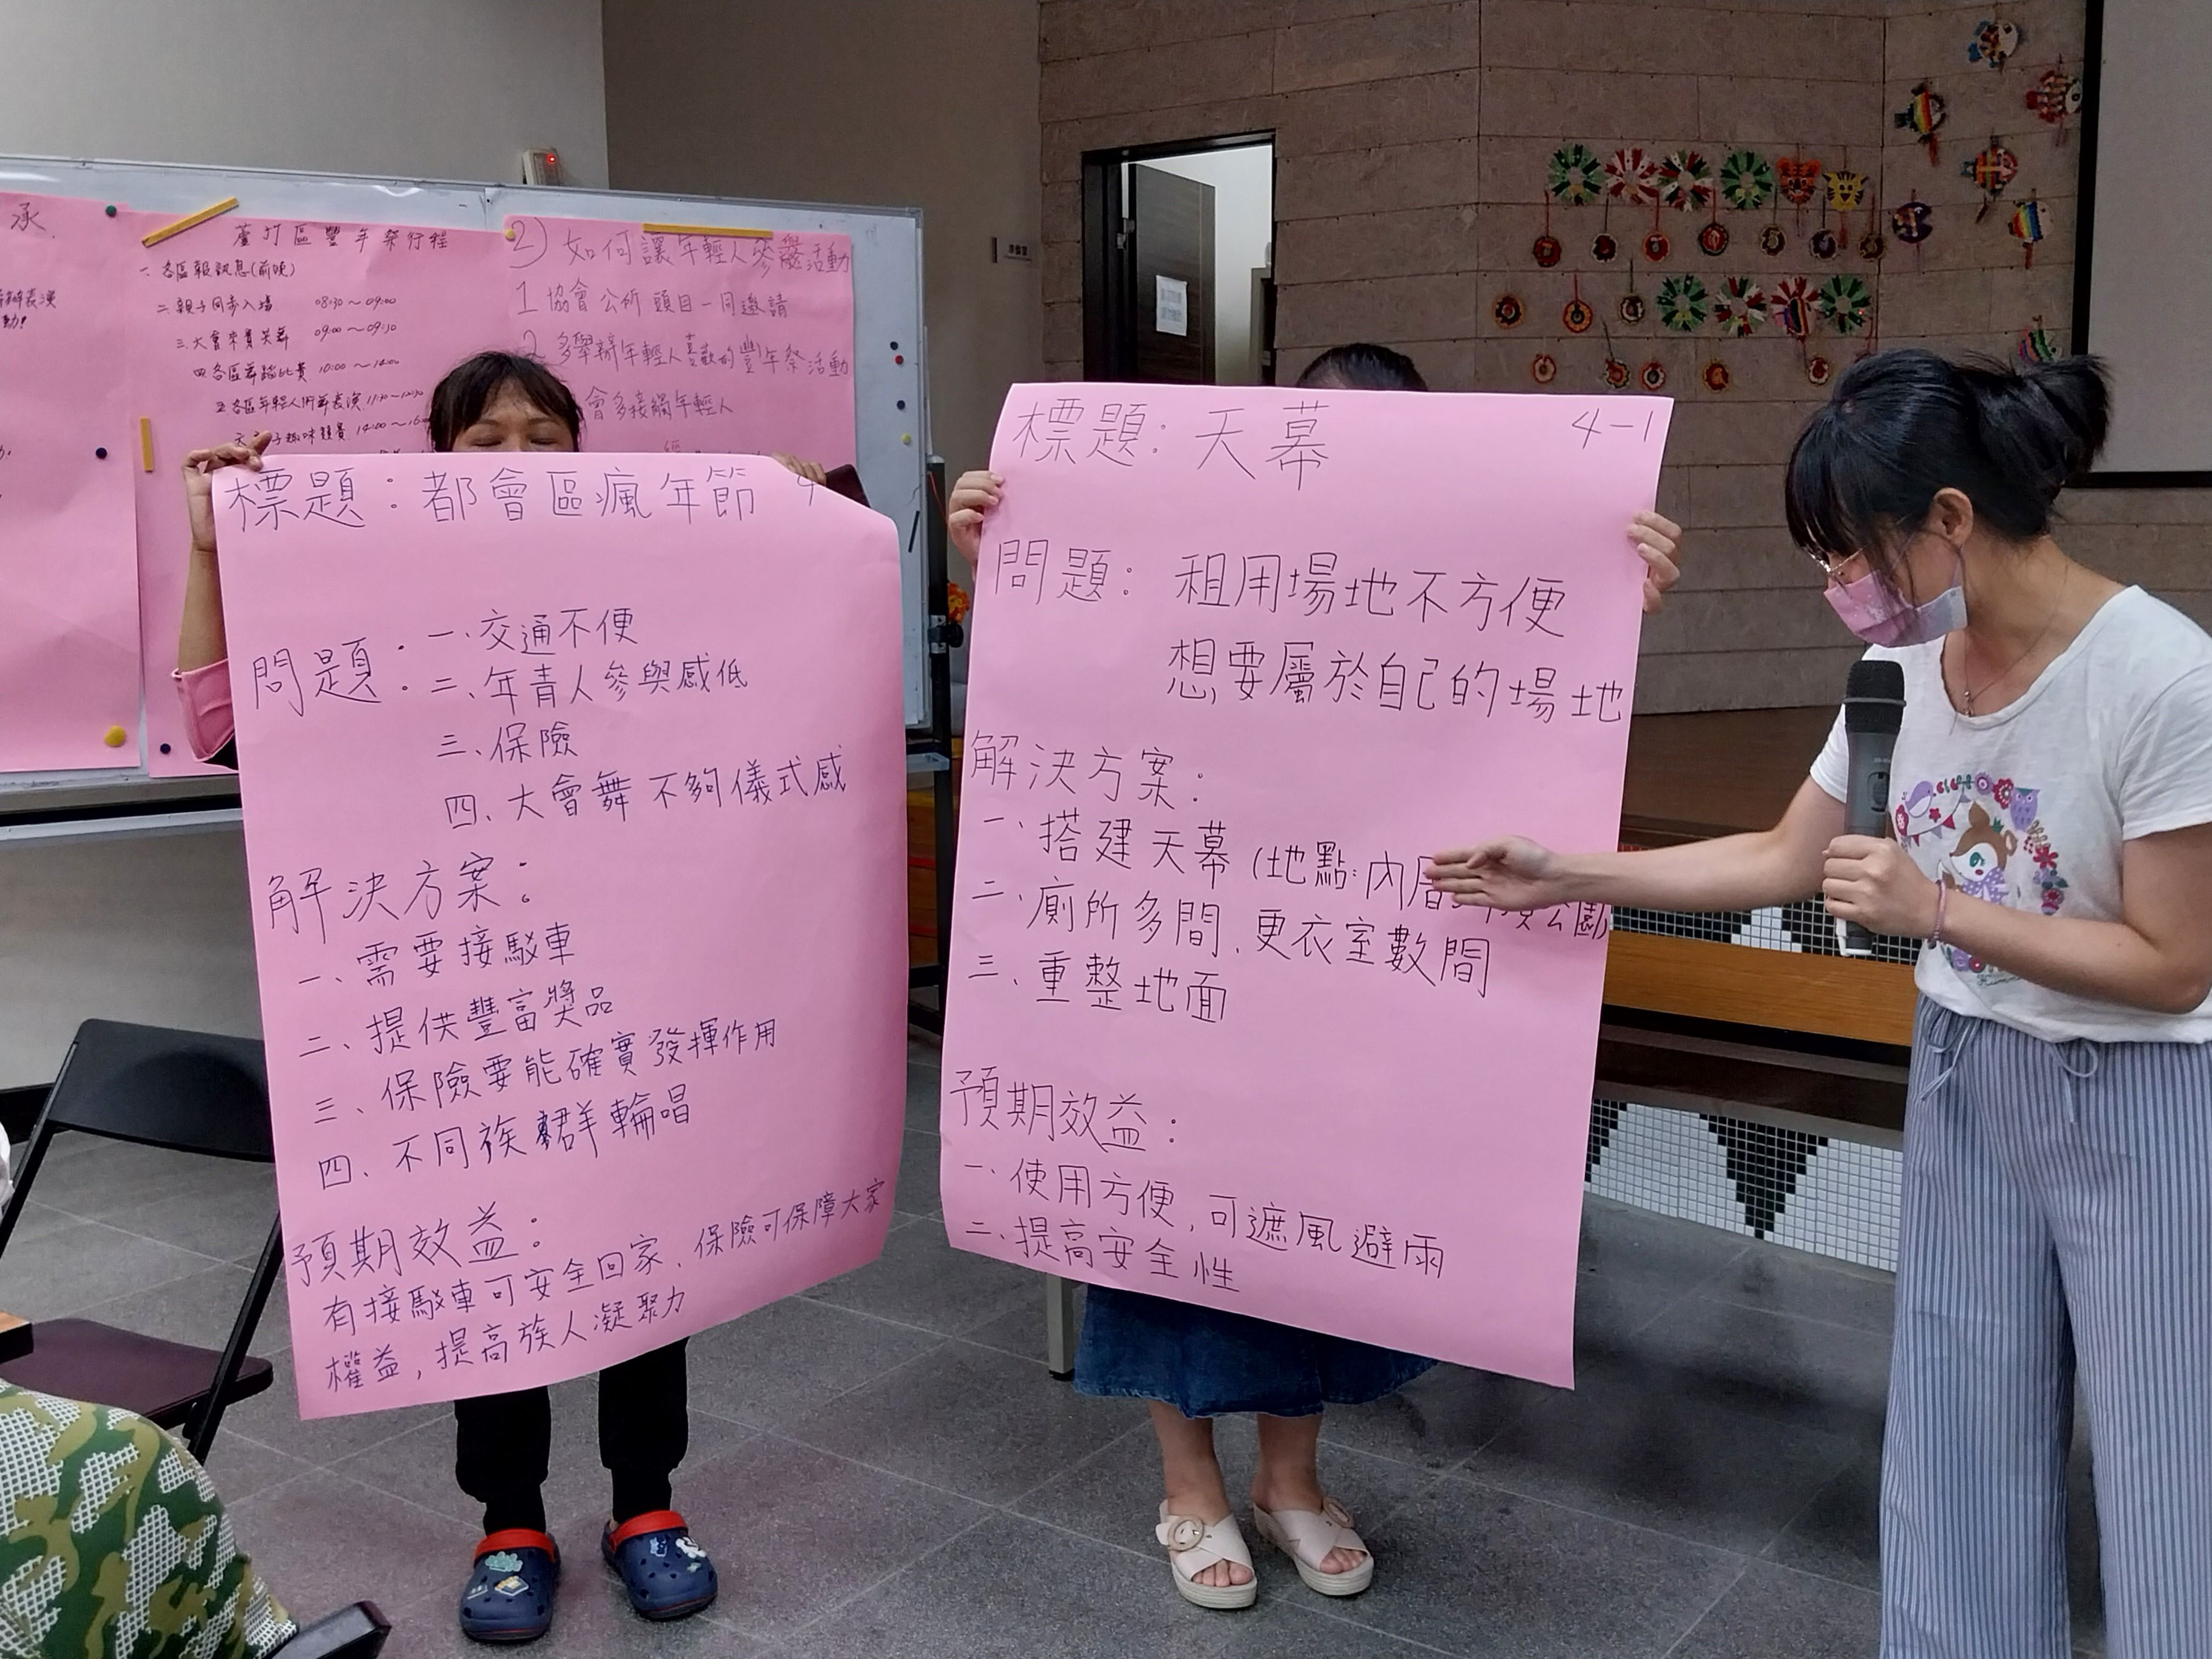 承
蘆竹區豐年祭行程
一、各區報訊息(前晚)
二、親子同歩入場 08:30～09:00
三、大會來賓共舞 09:00～09:30
四、各區舞蹈比賽 10:00～14:00
五、各區年輕人術舞表演 11:30～12:30
子趣味競賽 14:00～16:00
2) 如何讓年輕人參與活動
1 協會 公所 頭目一同邀請
2 多舉辦年輕人喜歡的豐年祭活動
會多接觸年輕人
標題：都會區瘋年節 4
問題：一、交通不便
二、年青人參與感低
三、保險
四、大會舞 不夠儀式感
解決方案：
一、需要接駁車
二、提供豐富獎品
三、保險要能確實發揮作用
四、不同族群輪唱
預期效益：
有接駁車可安全回家、保險可保障大家
權益，提高族人凝聚力
標題：天幕 4-1
問題：租用場地不方便
想要屬於自己的場地
解決方案：
一、搭建天幕(地點:內 公園)
二、廁所多間、更衣室數間
三、重整地面
預期效益：
一、使用方便，可遮風避雨
二、提高安全性